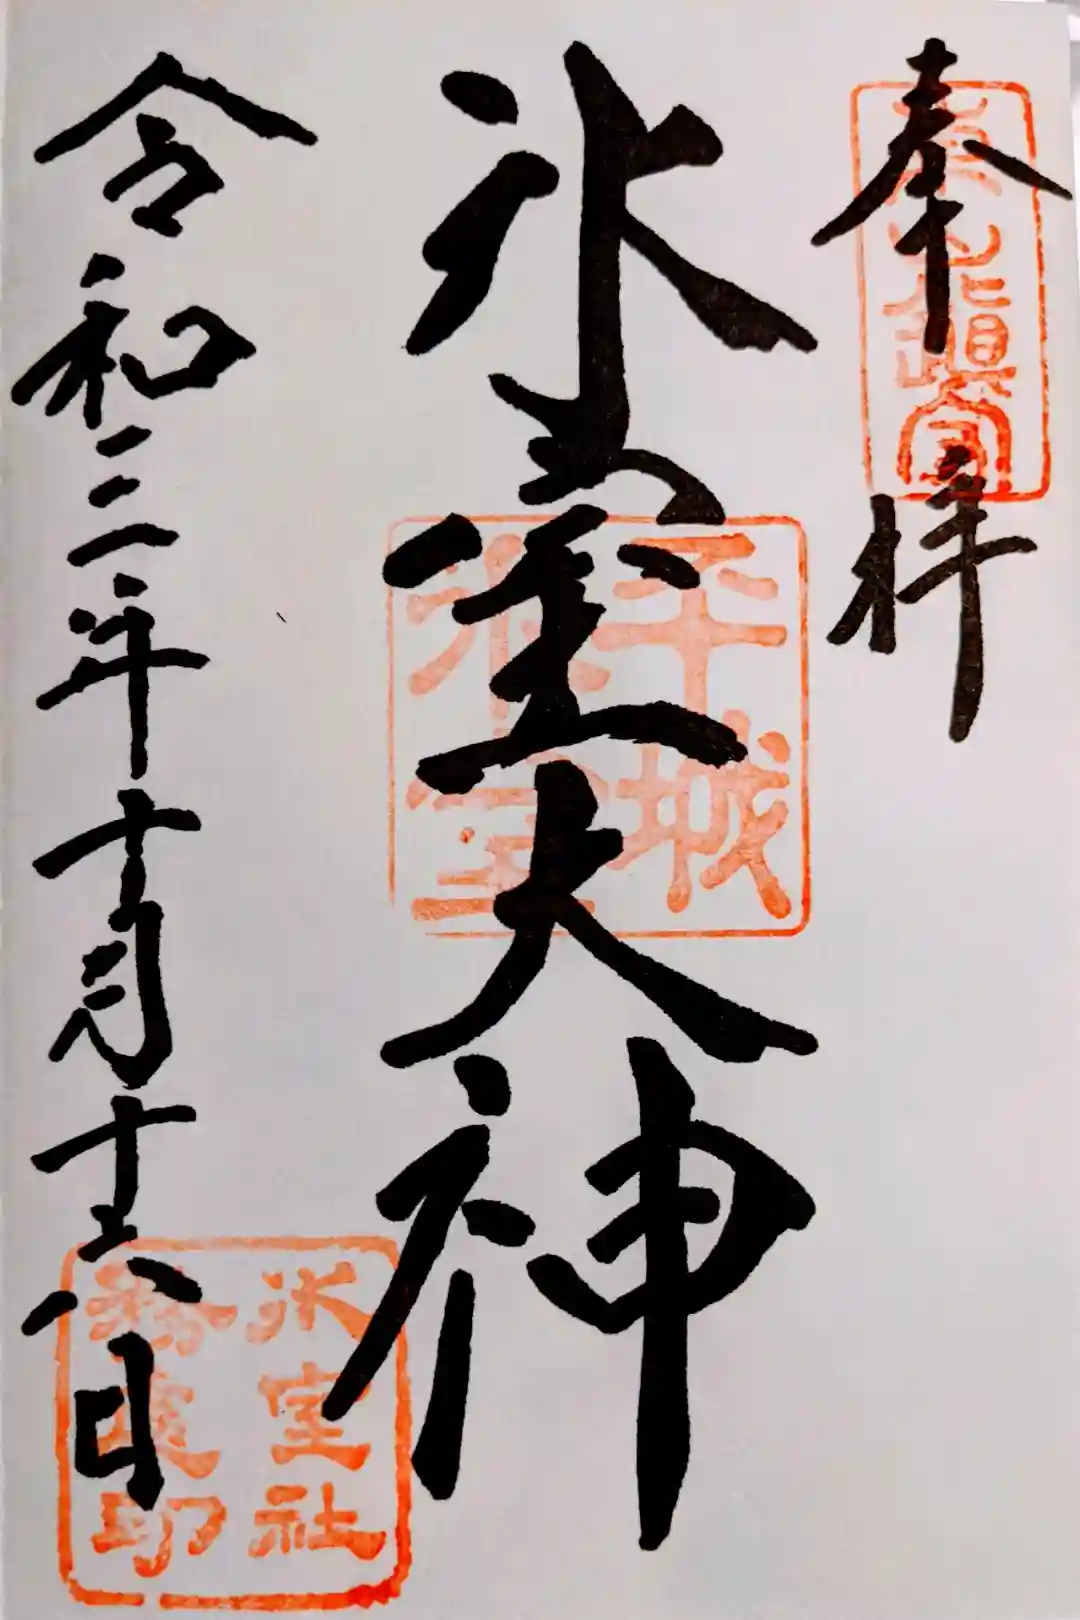 奉拝
氷室大神
令和三年十月十六日
平城
氷室
氷室社
務處印